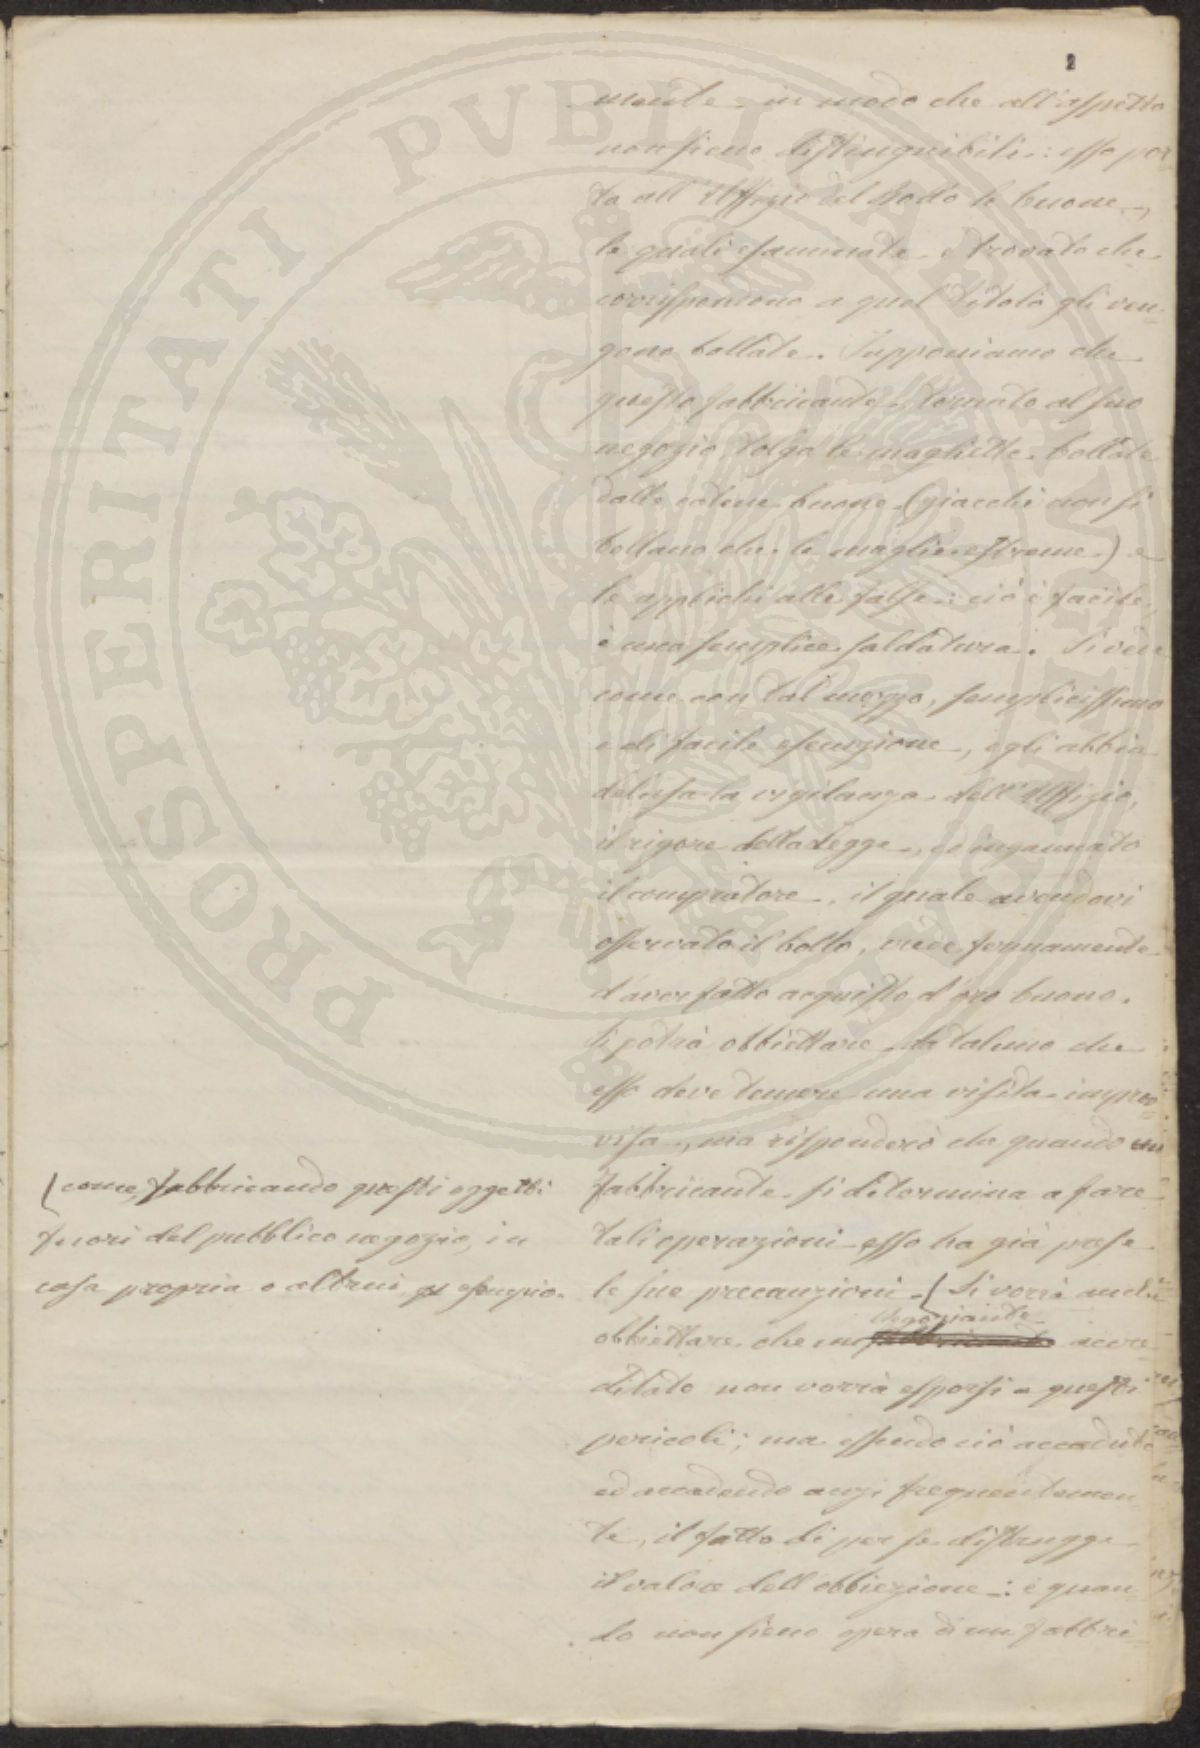 2
mente in modo che all'aspetto
non sieno distinguibili: esso por=
ta all'Uffizio del Bollo le buone,
le quali esaminate e trovato che
corrispondono a quel titolo gli ven=
gono bollate. Supponiamo che
questo fabbricante, tornato al suo
negozio tolga le magliette bollate
dalle catene buone (giacchè non si
bollano che le maglie estreme) e
le applichi alle false: ciò è facile,
è una semplice saldatura. Si vede
come con tal mezzo, semplicissimo
e di facile esecuzione, egli abbia
delusa la vigilanza dell'Uffizio,
il rigore della legge, ed ingannato
il compratore, il quale avendovi
osservato il bollo, crede fermamente
d'aver fatto acquisto d'oro buono.
Si potrà obbiettare da taluno che
esso deve temere una visita improv=
visa, ma risponderò che quando un
fabbricante si determina a fare
tali operazioni esso ha già prese
le sue precauzioni ( Si vorrà anche
obbiettare che un negoziante accre=
ditato non vorrà esporsi a questi
pericoli; ma essendo ciò accaduto
ed accadendo anzi frequentemen=
te, il fatto di per se distrugge
il valore dell'obbiezione: e quan=
do non sieno opera di un fabbri=
( come, fabbricando questi oggetti
fuori del pubblico negozio, in
casa propria o altrui, per esempio.
PROSPERITATI PUBLICAE